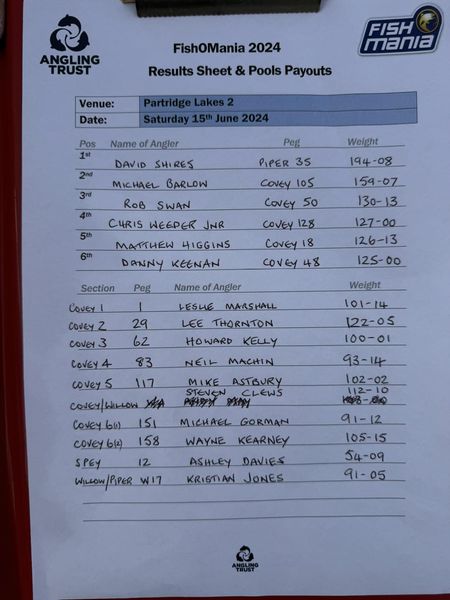 ANGLING
TRUST
FishOMania 2024
FISH
MANIA
Results Sheet & Pools Payouts
Venue: Partridge Lakes 2
Date: Saturday 15th June 2024
Pos Name of Angler Peg Weight
1st DAVID SHIRES PIPER 35 194-08
2nd MICHAEL BARLOW COVEY 105 159-07
3rd ROB SWAN COVEY 50 130-13
4th CHRIS WEEDER JNR COVEY 128 127-00
5th MATTHEW HIGGINS COVEY 18 126-13
6th DANNY KEENAN COVEY 48 125-00
Section Peg Name of Angler Weight
COVEY 1 1 LESLIE MARSHALL 101-14
COVEY 2 29 LEE THORNTON 122-05
COVEY 3 62 HOWARD KELLY 100-01
COVEY 4 83 NEIL MACHIN 93-14
COVEY 5 117 MIKE ASTBURY 102-02
STEVEN CLEWS 112-10
COVEY/WILLOW
COVEY 6(1) 151 MICHAEL GORMAN 91-12
COVEY 6(2) 158 WAYNE KEARNEY 105-15
SPEY 12 ASHLEY DAVIES 54-09
WILLOW/PIPER W17 KRISTIAN JONES 91-05
ANGLING
TRUST